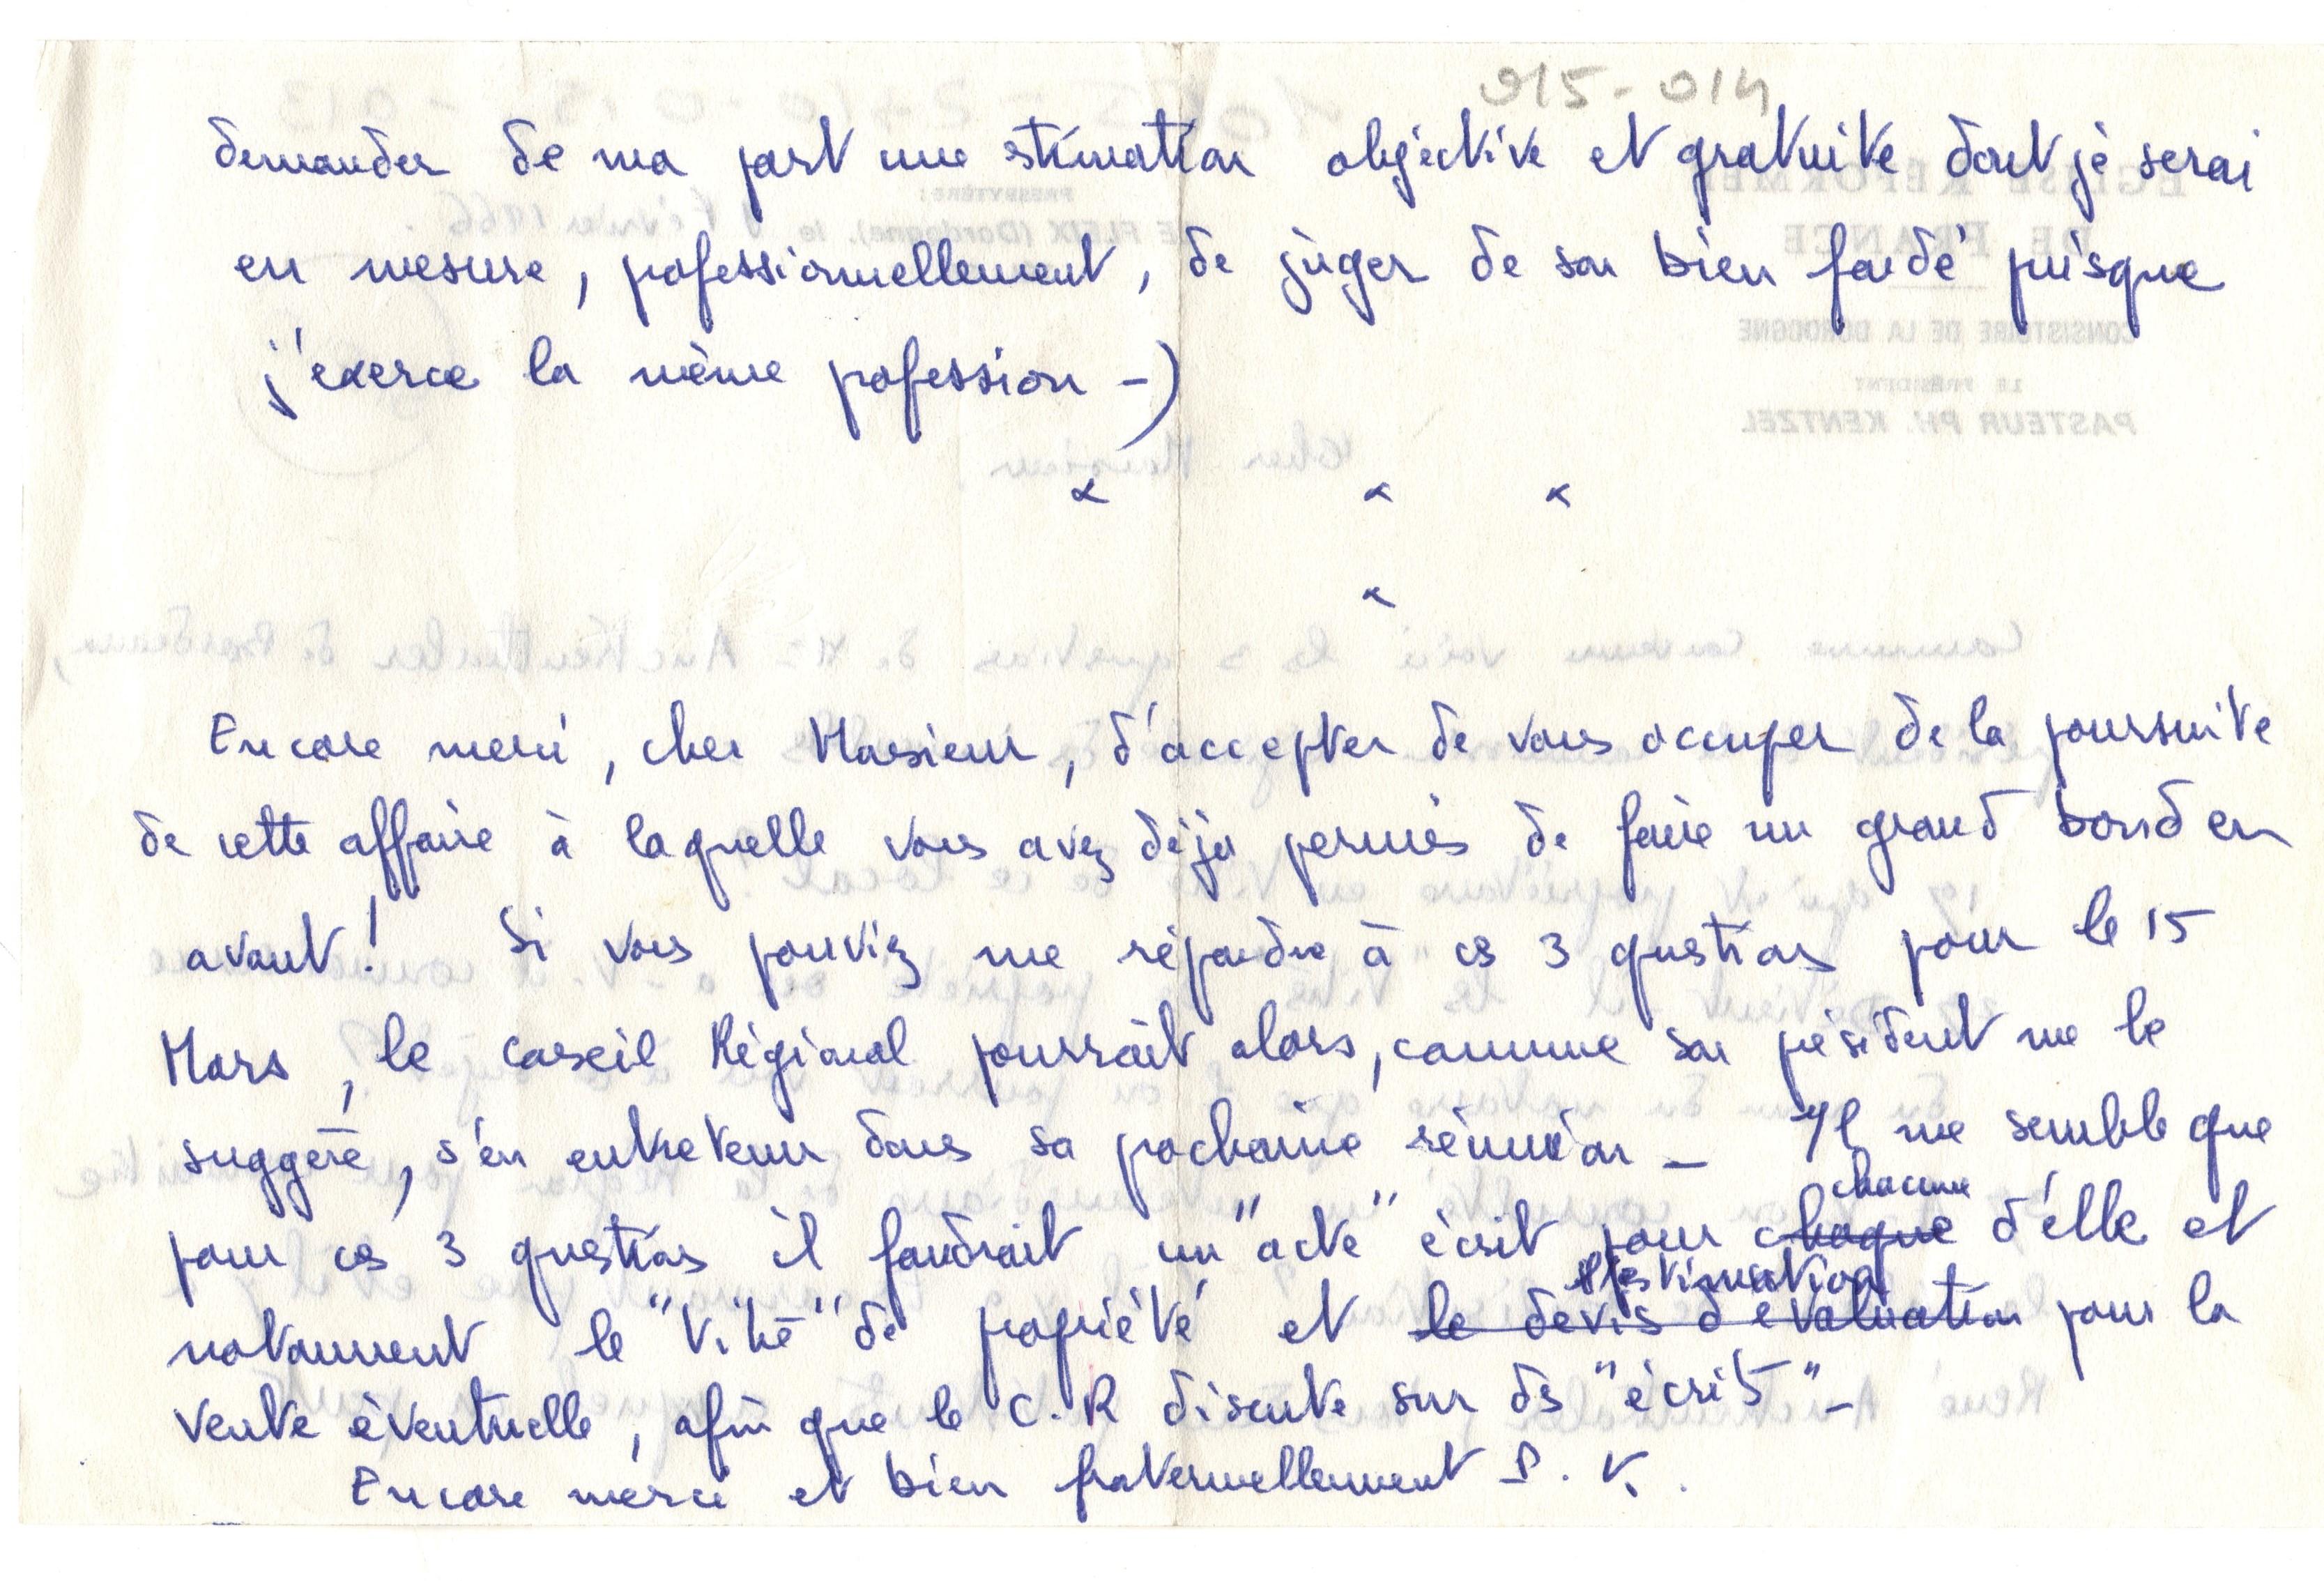 915-014
demander de ma part une stimation objective et gratuite dont je serai
en mesure, pofessionnellement, de juger de son bien fondé puisque
j'exerce la même pofession -)
x x x
x
Encore merci, cher Monsieur, d'accepter de vous occuper de la poursuite
de cette affaire à laquelle vous avez déjà permis de faire un grand bond en
avant! Si vous pouviez me répondre à ces 3 questions pour le 15
Mars, le conseil Régional pourrait alors, comme son président me le
suggère, s'en entretenir dans sa pochaine réunion - Il me semble que
chacune
pour ces 3 questions il faudrait un "acte" écrit pour chaque d'elle et
l'estimation
notamment le "titre" de propriété et le devis d'évaluation pour la
vente éventuelle, afin que le C.R discute sur des "écrits" -
Encore merci et bien fraternellement P. K.